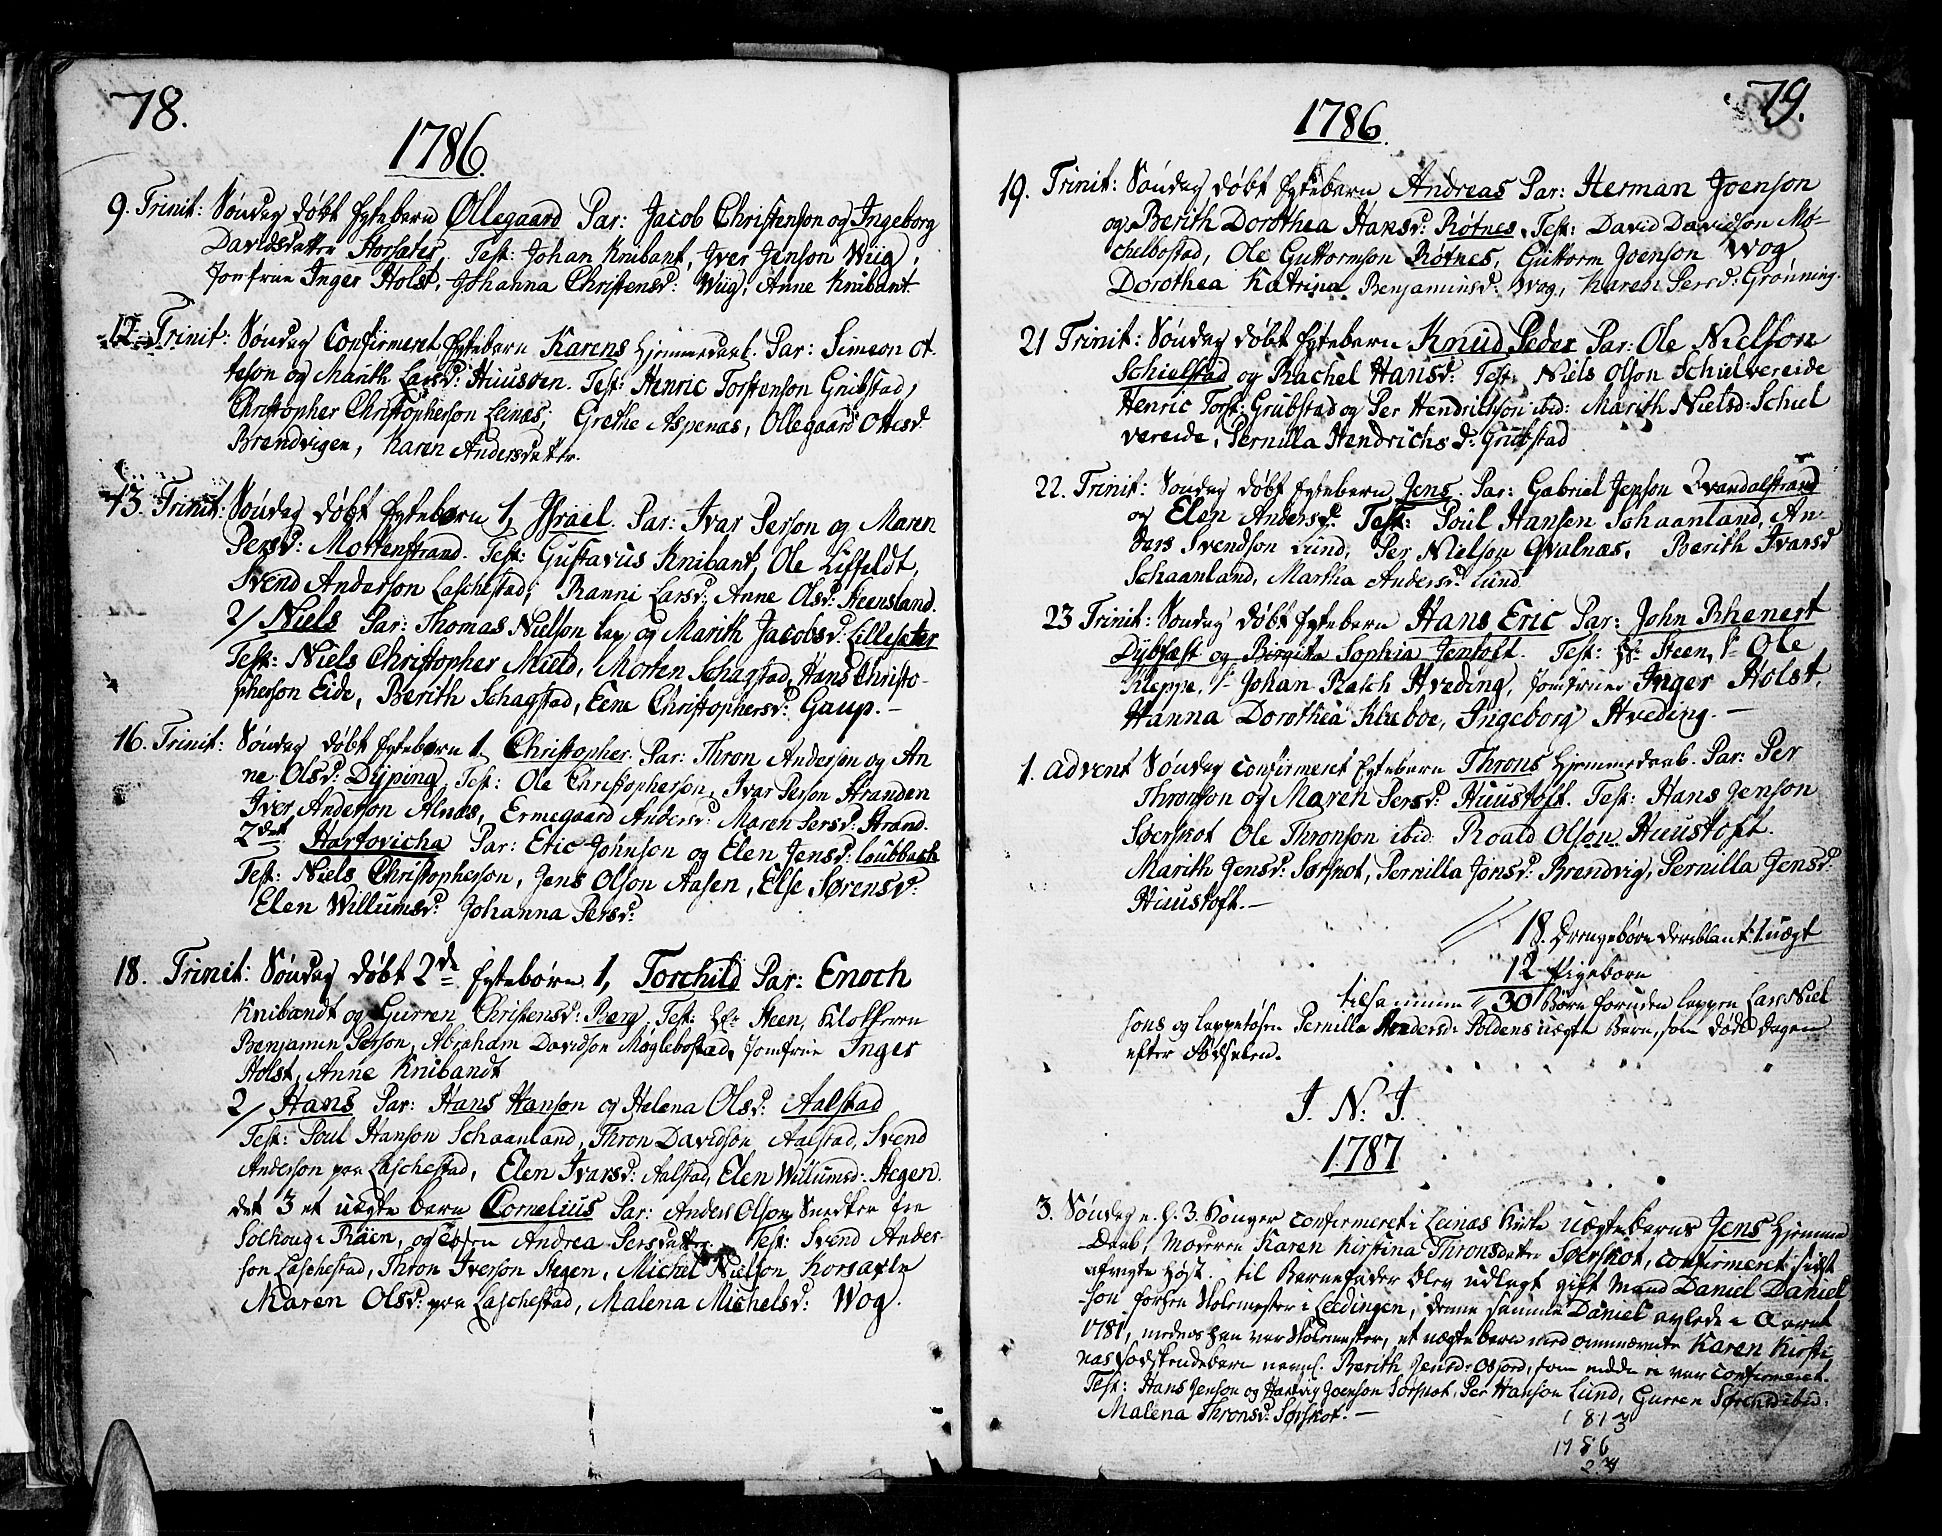 78.
1786.
9. Trinit: Søndag døbt Egtebarn Ollegaard Par: Jacob Christenson og Ingeborg
Davidsdatter Storsæter. Test: Johan Knibant, Iver Jenson Wiig,
Jomfrue Inger Holst, Johanna Christensd: Wiig, Anne Knibant
12. Trinit: Søndag Confirmeret Egtebarn Karens Hjemmedaab. Par: Simeon Ot
teson og Marith Larsd: Huusøen. Test: Henric Torstenson Grubstad,
Christopher Christopherson Leinæs, Grethe Aspenæs, Ollegaard Ottesd
Brendvigen, Karen Andersdatter.
13. Trinit: Søndag døbt Egtebørn 1, Israel. Par: Ivar Person og Maren
Persd: Mortenstrand. Test: Gustavus Knibant, Ole Liffeldt,
Svend Anderson Laschestad, Ranni Larsd: Anne Olsd: Heensland.
2/ Niels Par: Thomas Nielson lap og Marith Jacobsd: Lillesæter
Test: Niels Christopher Mield, Morten Schagstad, Hans Christo-
pherson Eide, Berith Schagstad, Eene Christophersd: Gaup. –
16. Trinit: Søndag døbt Egtebørn 1. Christopher. Par: Thron Anderson og An
ne Olsd: Dyping, Test: Ole Christopherson, Ivar Person Stranden
Iver Anderson Alnæs, Ermegaard Andersd: Maren Persd: Strand.
2det Hartovicha Par: Eric Johnson og Elen Jensd: Coubbach
Test: Niels Christopherson, Jens Olson Aasen, Else Sørensd:
Elen Willumsd: Johanna Persd:
18. Trinit: Søndag døbt 2de Egtebørn. 1, Torchild Par: Enoch
Knibandt og Gurren Christensd: Berg, Test: Hr. Steen, Klokkeren
Benjamin Person, Abraham Davidson Møglebostad, Jomfrue Inger
Holst, Anne Knibandt
2/ Hans Par: Hans Hanson og Helena Olsd: Aalstad
Test: Poul Hanson Schaanland, Thron Davidson Aalstad, Svend
Anderson paa Laschestad, Elen Ivarsd: Aalstad, Elen Willumsd: Hegen.
det 3 et uægte barn Cornelius Par: Anders Olson Snedker fra
Solhoug i Røien, og Andrea Persdatter Test: Svend Ander
son Laschestad, Thron Iverson Hegen, Michel Nielson Korsaxle
Maren Olsd: paa Laschestad, Malena Michelsd: Wog.
79.
1786.
19. Trinit: Søndag døbt Egtebarn Andreas Par: Herman Joenson
og Berith Dorothea Hansd: Røtnes, Test: David Davidson Mø-
chelbostad, Ole Guttormson Røtnes, Guttorm Joenson Wog
Dorothea Katrina Benjaminsd: Wog, Karen Persd: Grønning.
21 Trinit: Søndag døbt Egtebarn Knud Peder Par: Ole Nielson
Schielstad og Rachel Hansd: Test: Niels Olson Schielvereide
Henric Torst: Grubstad og Per Hendrikson ibid: Marith Nielsd: Schiel
vereide, Pernilla Hendrichs d: Grubstad
22. Trinit: Søndag døbt Egtebarn Jens. Par: Gabriel Jepson Qvandalstrand
og Elen Andersd: Test: Poul Hansen Schaanland, An-
ders Svendson Lund, Per Nielson Qvalnæs, Berith Ivarsd
Schaanland, Martha Andersd: Lund
23 Trinit: Søndag døbt Egtebarn Hans Eric Par: John Rhenert
Dybfæst og Birgita Sophia Jentoft. Test: Hr. Steen, Sr Ole
Kleppe, Sr Johan Rasch Hveding, Jomfruer Inger Holst,
Hanna Dorothea Klæboe, Ingeborg Hveding. –
1. Advent Søndag confirmeret Egtebarn Throns Hjemmedaab. Par: Per
Thronson og Maren Persd: Huustoft. Test: Hans Jenson
Sørskot Ole Thronson ibid. Roald Olson Huustoft.
Marith Jensd: Sørskot, Pernilla Jonsd: Brendvig, Pernilla Jensd:
Huustoft. –
18. Drengebørn deriblant: 1. uægt
12 Pigebørn
tilsammen 30 Børn foruden lappen Lars Niel
sons og lappetøsen Pernilla Andersd: Poldens uægte Barn, som døde dagen
efter Fødselen.
J. N: J.
1787
3. Søndag e. H. 3. Konger confirmeret i Leinæs Kirke uægtebarns Jens Hjemme
daab, Moderen Karen Kirstina Thronsdater Sørskot, confirmeret sidst
afvigte Høst. til Barnefader blev udlagt gift Mand Daniel Daniel
son forhen Skolemester i Lødingen, denne samme Daniel avlede i Aaret
1781, medens han var Skolemester, et uægte barn med ommærmte Karen Kirsti
nas Sødskendebarn nemml. Berith Jensd: Osjord, som endda ei var confirmeret.
Test: Hans Jenson og Hartvig Joenson Sørskot, Per Hanson Lund, Gurren Sørensd ibid.
Malena Thronsd: Sørskot. –
1813
1786
27